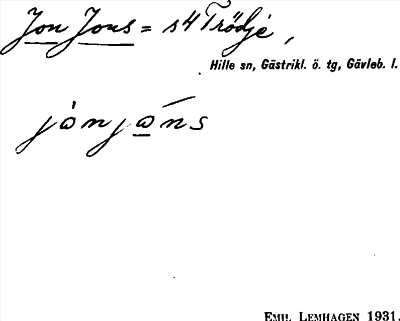 Jon Jons = s4 Trödjé,
Hille sn, Gästrikl. ö. tg, Gävleb. l.
jȧnjáns
EMIL LEMHAGEN 1931.